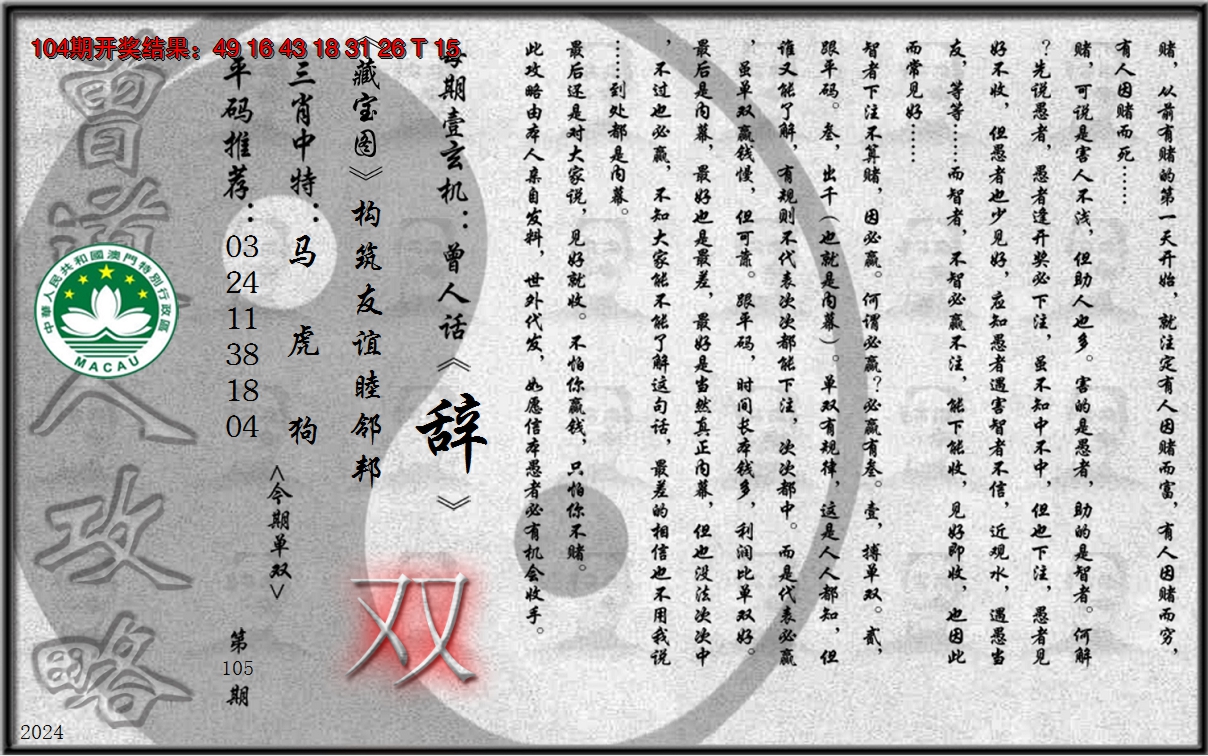 104期开奖结果：49 16 43 18 31 26 T 15
赌，从前有赌的第一天开始，就注定有人因赌而富，有人因赌而穷，
有人因赌而死……
赌，可说是害人不浅，但助人也多。害的是愚者，助的是智者。何解
？先说愚者，愚者逢开奖必下注，虽不知中不中，但也下注，愚者见
好不收，但愚者也少见好，应知愚者遇害智者不信，近观水，遇愚当
友，等等……而智者，不智必赢不注，能下能收，见好即收，也因此
而常见好……
智者下注不算赌，因必赢。何谓必赢？必赢有叁。壹，搏单双。贰，
跟平码。叁，出千（也就是内幕）。单双有规律，这是人人都知，但
谁又能了解，有规则不代表次次都能下注，次次都中。而是代表必赢
，虽单双赢钱慢，但可靠。跟平码，时间长本钱多，利润比单双好。
最后是内幕，最好也是最差，最好是当然真正内幕，但也没法次次中
，不过也必赢，不知大家能不能了解这句话，最差的相信也不用我说
……到处都是内幕。
最后还是对大家说，见好就收。不怕你赢钱，只怕你不赌。
此攻略由本人亲自发料，世外代发，如愿信本愚者必有机会收手。
每期壹玄机：曾人话《辞》
《藏宝图》构筑友谊睦邻邦
双
三肖中特：马 虎 狗
<今期单双>
平码推荐：03 24 11 38 18 04
第105期
曾道人攻略
中華人民共和國澳門特別行政區
MACAU
2024